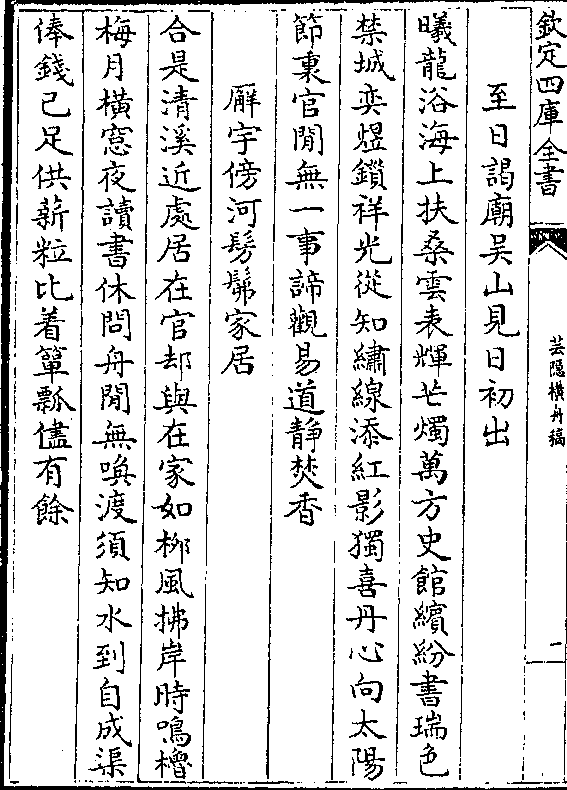 欽定四庫全書
芸隱橫舟稿
二
至日謁廟吳山見日初出
曦龍浴海上扶桑雲表輝芒燭萬方史館繽紛書瑞色
禁城奕煜鎖祥光從知繡線添紅影獨喜丹心向太陽
節裏官閒無一事諦觀易道靜焚香
廨宇傍河髣髴家居
合是清溪近處居在官却與在家如栁風拂岸時鳴櫓
梅月橫窓夜讀書休問舟閒無喚渡須知水到自成渠
俸錢已足供薪粒比着簞瓢儘有餘